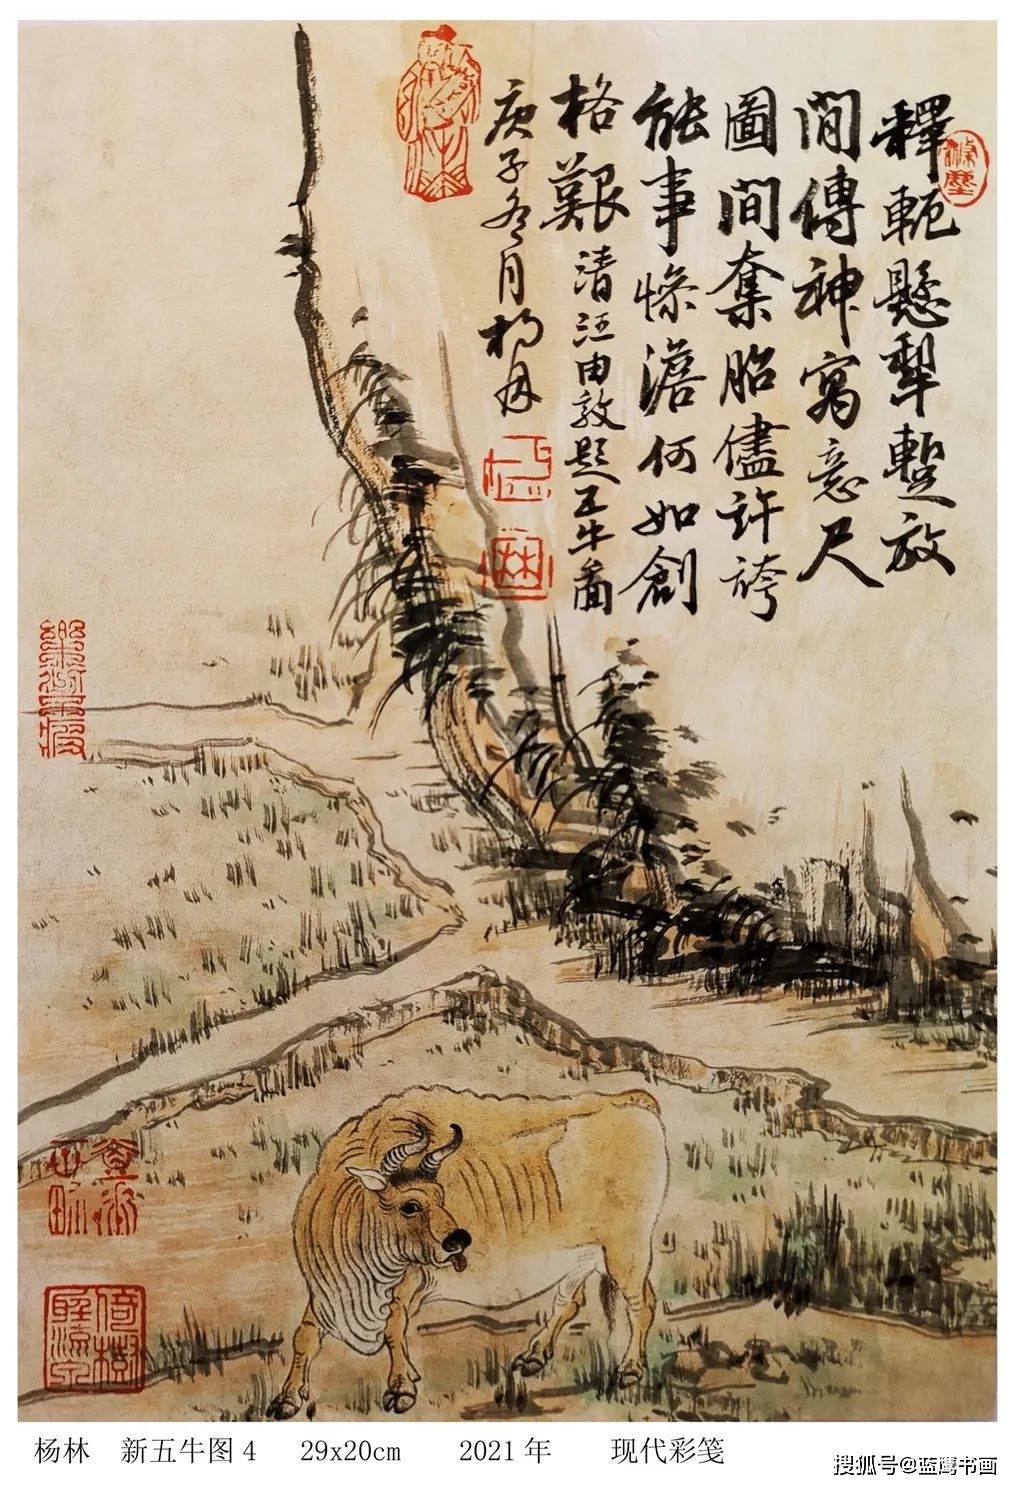 釋軛懸犁暫放
閒傳神寫意尺
圖間奪胎儘許誇
能事慘澹何如創
格艱 清汪由敦題五牛圖
庚子冬月楊林
滌塵
倚樹聽流泉
杨林 新五牛图4 29x20cm 2021年 现代彩笺
搜狐号@蓝鹰书画